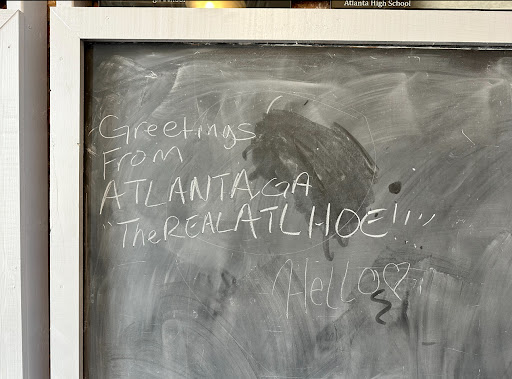 Atlanta High School
Greetings
From
ATLANTA,GA
"TheREALATLHOE!!,,
Hello♡!